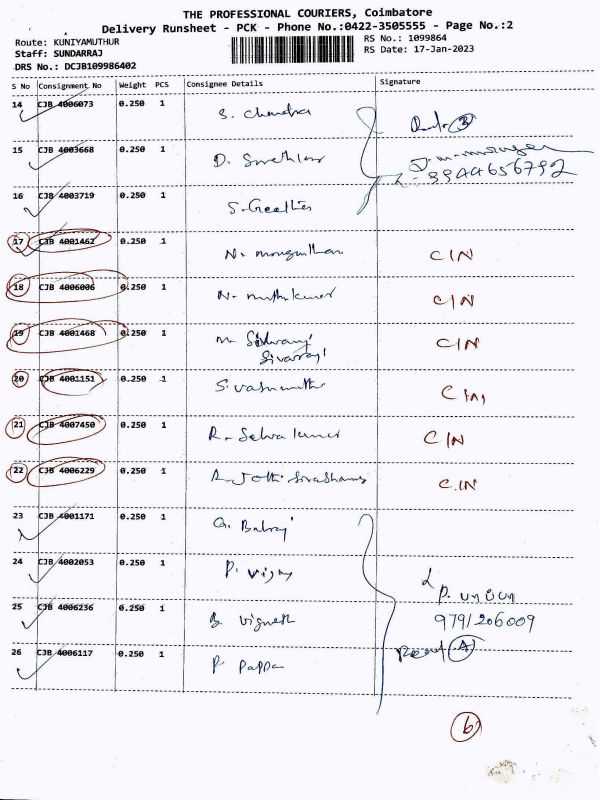 THE PROFESSIONAL COURIERS, Coimbatore
Delivery Runsheet - PCK - Phone No.:0422-3505555 - Page No.:2
Route: KUNIYAMUTHUR
RS No.: 1099864
Staff: SUNDARRAJ
RS Date: 17-Jan-2023
DRS No.: DCJB109986402
S No Consignment No Weight PCS Consignee Details Signature
14 CJB 4006073 0.250 1 S. Chandra
15 CJB 4003668 0.250 1 D.
9944656792
16 CJB 4003719 0.250 1 S.
17 CJB 4001462 0.250 1 N. CIN
18 CJB 4006006 0.250 1 N. muthukumar CIN
19 CJB 1001468 0.250 1 M. CIN
Sivaraji
20 CJB 4001151 0.250 1 CIN
21 CJB 4007450 0.250 1 R. Selvakumar CIN
22 CJB 4006229 0.250 1 C.IN
23 CJB 4001171 0.250 1 G. Balraj
24 CJB 4002053 0.250 1 P. Vijay
P. பாப்பா
25 CJB 4006236 0.250 1 B. Vignesh 9791206009
26 CJB 4006117 0.250 1 P. Pappa 4
6